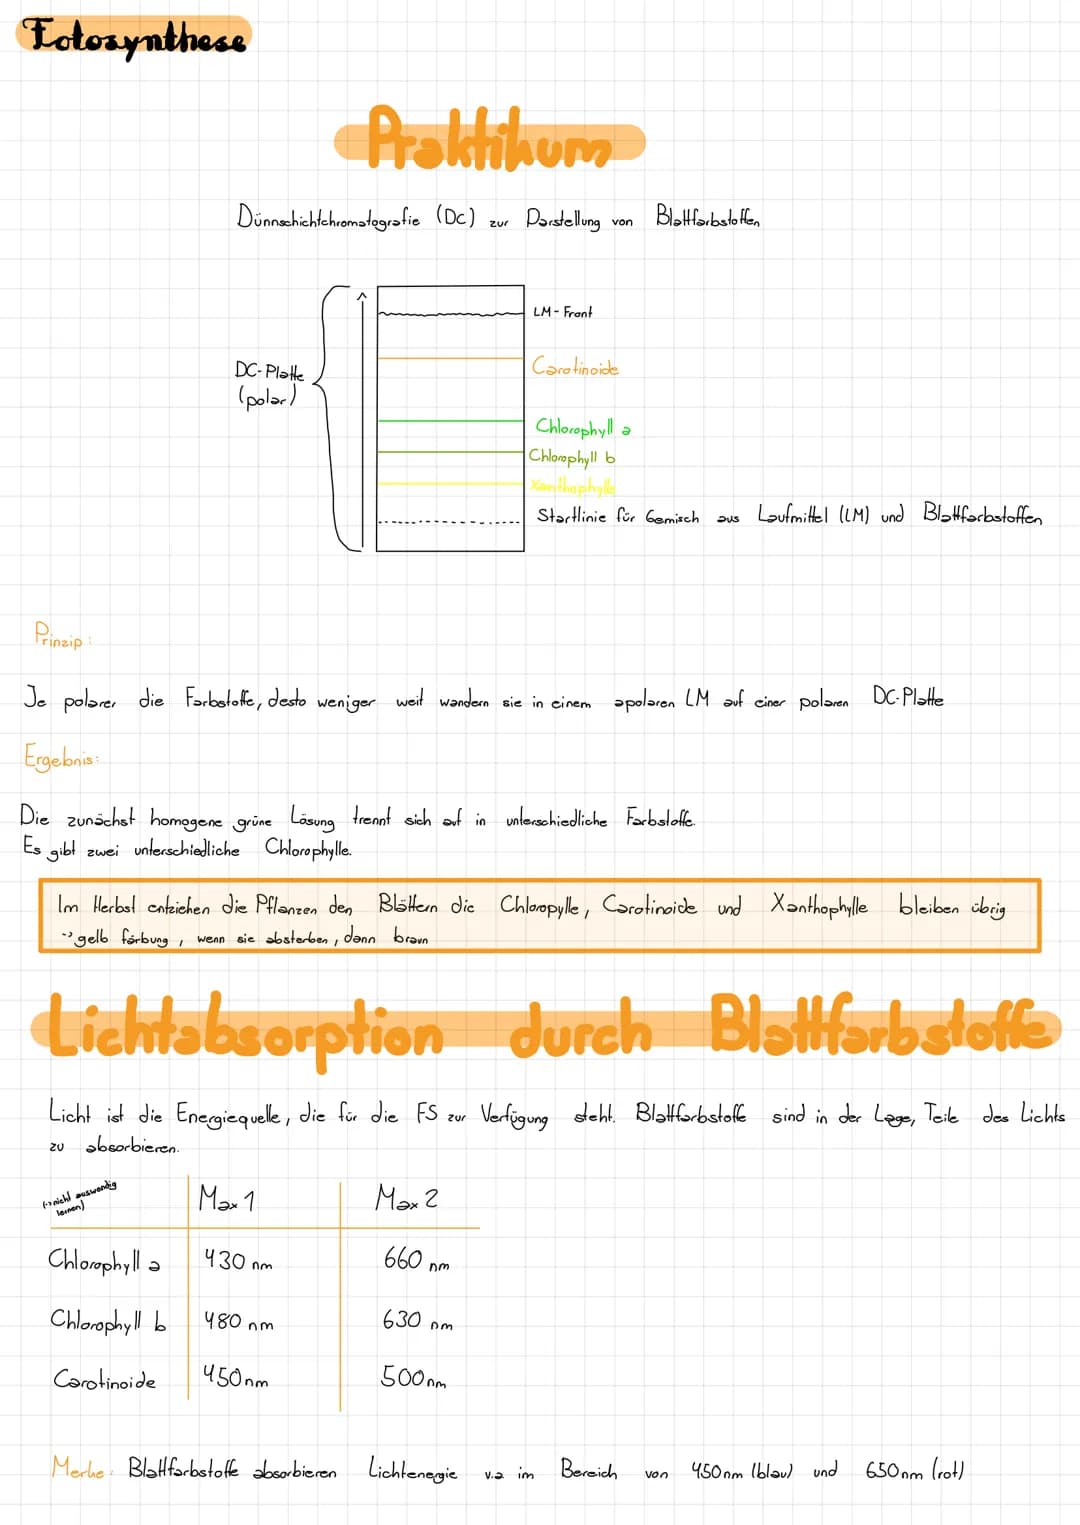 Fotosynthese
Praktikum
Dünnschichtchromatografie (DC) zur Darstellung von Blattfarbstoffen
LM-Front
Carotinoide
DC-Platte
(polar)
Chlorophyll a
Chlorophyll b
Xanthophylle
Startlinie für Gemisch aus Laufmittel (LM) und Blattfarbstoffen
Prinzip:
Je polarer die Farbstoffe, desto weniger weit wandern sie in einem apolaren LM auf einer polaren DC-Platte
Ergebnis:
Die zunächst homogene grüne Lösung trennt sich auf in unterschiedliche Farbstoffe.
Es gibt zwei unterschiedliche Chlorophylle.
Im Herbst entziehen die Pflanzen den Blättern die Chloropylle, Carotinoide und Xanthophylle bleiben übrig
-> gelb färbung, wenn sie absterben, dann braun
Lichtabsorption durch Blattfarbstoffe
Licht ist die Energiequelle, die für die FS zur Verfügung steht. Blattfarbstoffe sind in der Lage, Teile des Lichts
zu absorbieren.
(-> nicht auswendig
lernen)
Max 1 Max 2
Chlorophyll a 430 nm 660 nm
Chlorophyll b 480 nm 630 nm
Carotinoide 450nm 500nm
Merke: Blattfarbstoffe absorbieren Lichtenegie v.a im Bereich von 450nm (blau) und 650nm (rot)